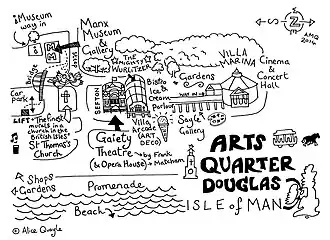 iMuseum
way in
Manx
Museum
&
Gallery
THE
MIGHTY
WURLITZER
VILLA
MARINA
Cinema
&
Concert
Hall
AMQ
N
Car
Park
LIFT
"The finest
murals in a
church in the
British Isles"
St Thomas's
Church
SEFTON
Bistro
Ice
Cream
Parlour
Gardens
WAY IN
Villa
Arcade
(ART
DECO)
Sayle
Gallery
Gaiety
Theatre
(& Opera House)
by Frank
Matcham
ARTS
QUARTER
DOUGLAS
ISLE of MAN
Shops
Gardens
Promenade
Beach
© Alice Quayle